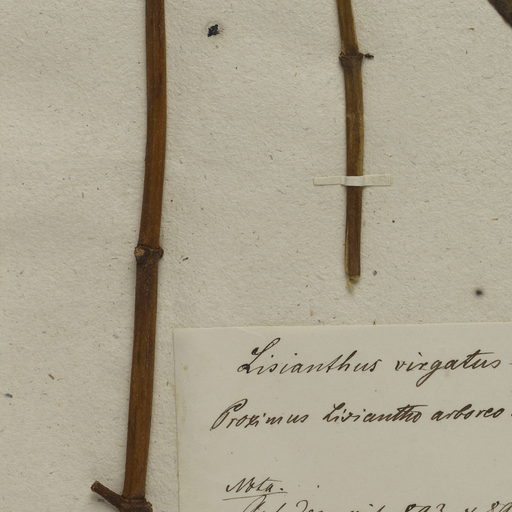 Lisianthus virgatus
Proximus Lisiantho arboreo
Nota.